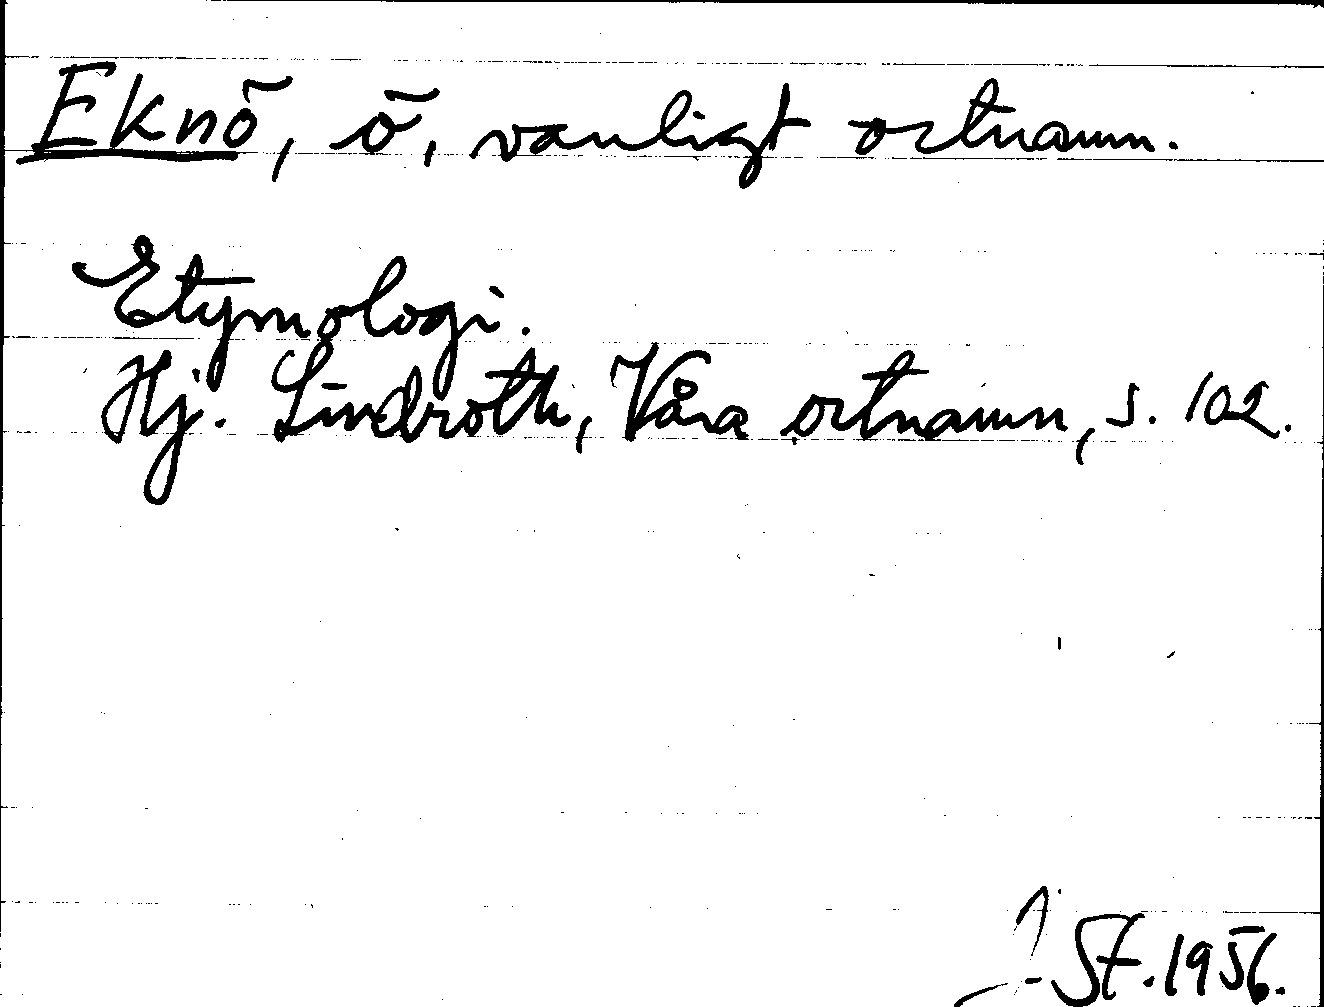 Eknö, ö, vanligt ortnamn.
Etymologi.
Hj. Lindroth, Våra ortnamn, s. 102.
St. 1956.